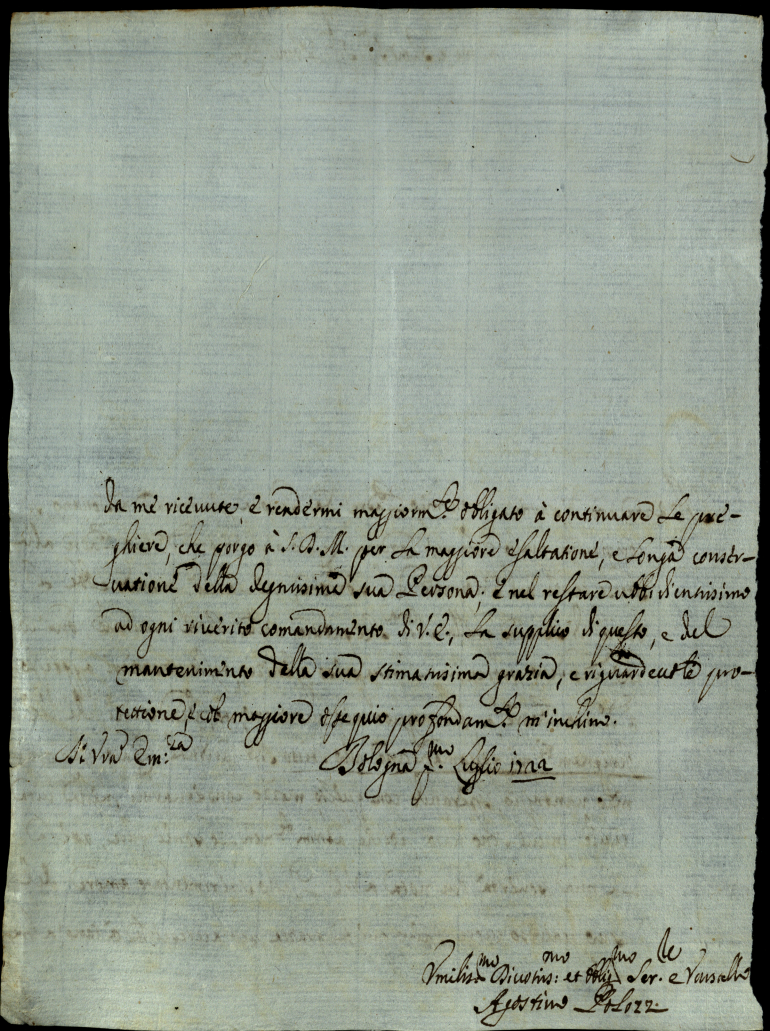 da me riceuute, e rendermi maggiorm.te obligato à continuare le pre-
ghiere, che porgo à S. D. M. per la maggiore esaltatione, e longa conser-
uatione della degnissima sua Persona; e nel restare ubbidientissimo
ad ogni riuerito comandamento di V. E., la supplico di questo, e del
mantenimento della sua stimatissima grazia, e riguardeuole pro-
tettione, e col maggiore ossequio profondam.te m'inchino.
Di Vra Em:za
Bologna p.mo Luglio 1722
Vmilis.mo Diuotis:mo et Oblig.mo Ser.le e Vassallo
Agostino Polozz.